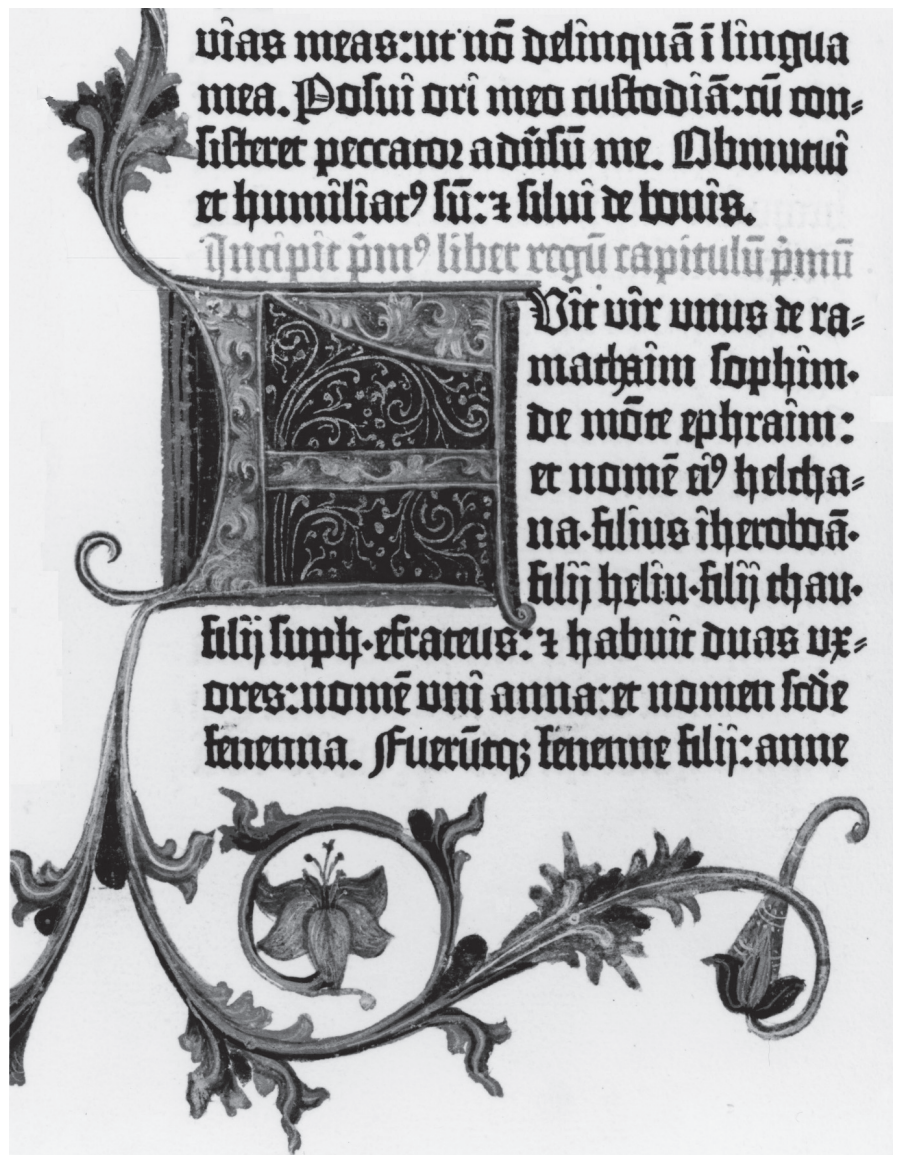 vias meas: ut nō delinquā ī lingua
mea. Posui ori meo custodiā: cū con-
sisteret peccator adūsū me. Obmutui
et humiliatꝰ sū: ⁊ silui de bonis.
Incipit p̄mꝰ liber regū capitulū p̄mū
F
Vit vir unus de ra-
mathaim sophim·
de mōte ephraim:
et nomē eiꝰ helcha-
na· filius iheroboā·
filij heliu· filij thau·
filij suph· efrateus: ⁊ habuit duas ux-
ores: nomē uni anna: et nomen scd̄e
fenenna. Fuerūtqꝫ fenenne filij: anne